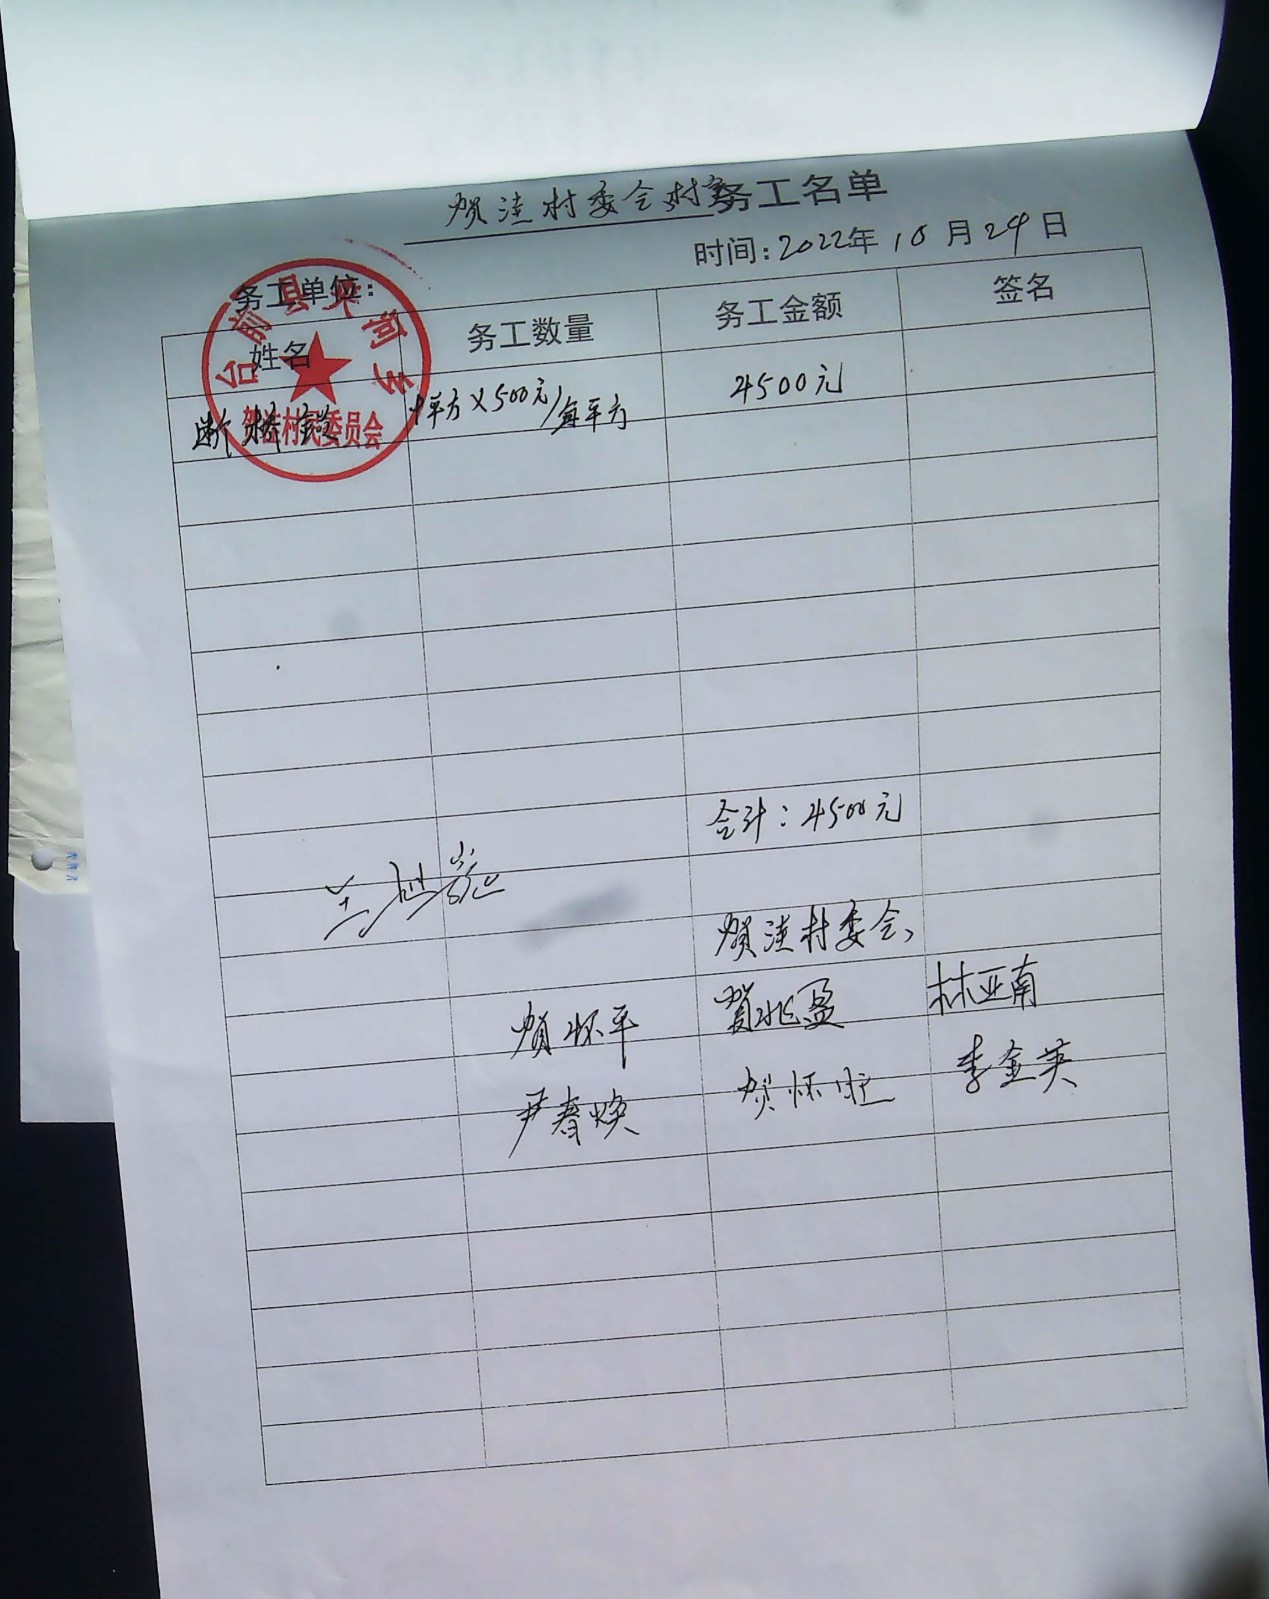 贺洼村委会村务工名单
时间：2022年10月24日
务工单位：
姓名 务工数量 务工金额 签名
断桥铝 平方×500元/每平方 4500元
台前县夹河乡
贺洼村村民委员会
合计：4500元
贺洼村委会、
贺怀平 贺兆盈 林亚南
尹春焕 贺怀旺 李金英